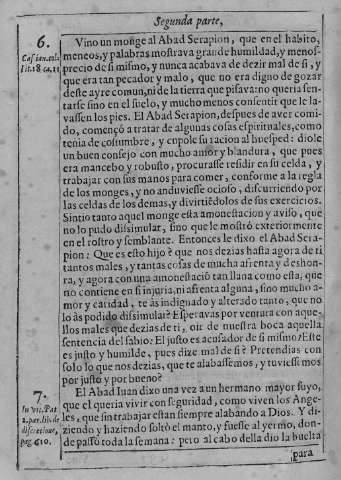 Segunda parte,
6.
Vino un monge al Abad Serapion, que en el habito,
meneos, y palabras mostrava grande humildad, y menos-
precio de si mismo, y nunca acabava de dezir mal de si, y
que era tan pecador y malo, que no era digno de gozar
deste ayre comun, ni de la tierra que pisava: no queria sen-
tarse sino en el suelo, y mucho menos consentir que le la-
vassen los pies. El Abad Serapion, despues de aver comi-
do, començó a tratar de algunas cosas espirituales, como
tenia de costumbre, y cupole su racion al huesped: diole
un buen consejo con mucho amor y blandura, que pues
era mancebo y robusto, procurasse residir en su celda, y
trabajar con sus manos para comer, conforme a la regla
de los monges, y no anduviesse ocioso, discurriendo por
las celdas de los demas, y divirtiēdolos de sus exercicios.
Sintio tanto aquel monge esta amonestacion y aviso, que
no lo pudo dissimular, sino que le mostró exteriormente
en el rostro y semblante. Entonces le dixo el Abad Sera-
pion: Que es esto hijo? que nos dezias hasta agora de ti
tantos males, y tantas cosas de mucha afrenta y deshon-
ra, y agora con una amonestació tan llana como esta, que
no contiene en si injuria, ni afrenta alguna, sino mucho a-
mor y caridad, te às indignado y alterado tanto, que no
lo às podido dissimular? Esperavas por ventura con aque-
llos males que dezias de ti, oir de nuestra boca aquella
sentencia del sabio: El justo es acusador de si mismo? Este
es justo y humilde, pues dize mal de si? Pretendias con
solo lo que nos dezias, que te alabassemos, y tuviessemos
por justo y por bueno?
7.
El Abad Iuan dixo una vez a un hermano mayor suyo,
que el queria vivir con seguridad, como viven los Ange-
les, que sin trabajar estan siempre alabando a Dios. Y di-
ziendo y haziendo soltò el manto, y fuesse al yermo, don-
de passò toda la semana: pero al cabo della dio la buelta
In vit. Pat.
2. par. lib. de
discretione,
pag. 610.
para